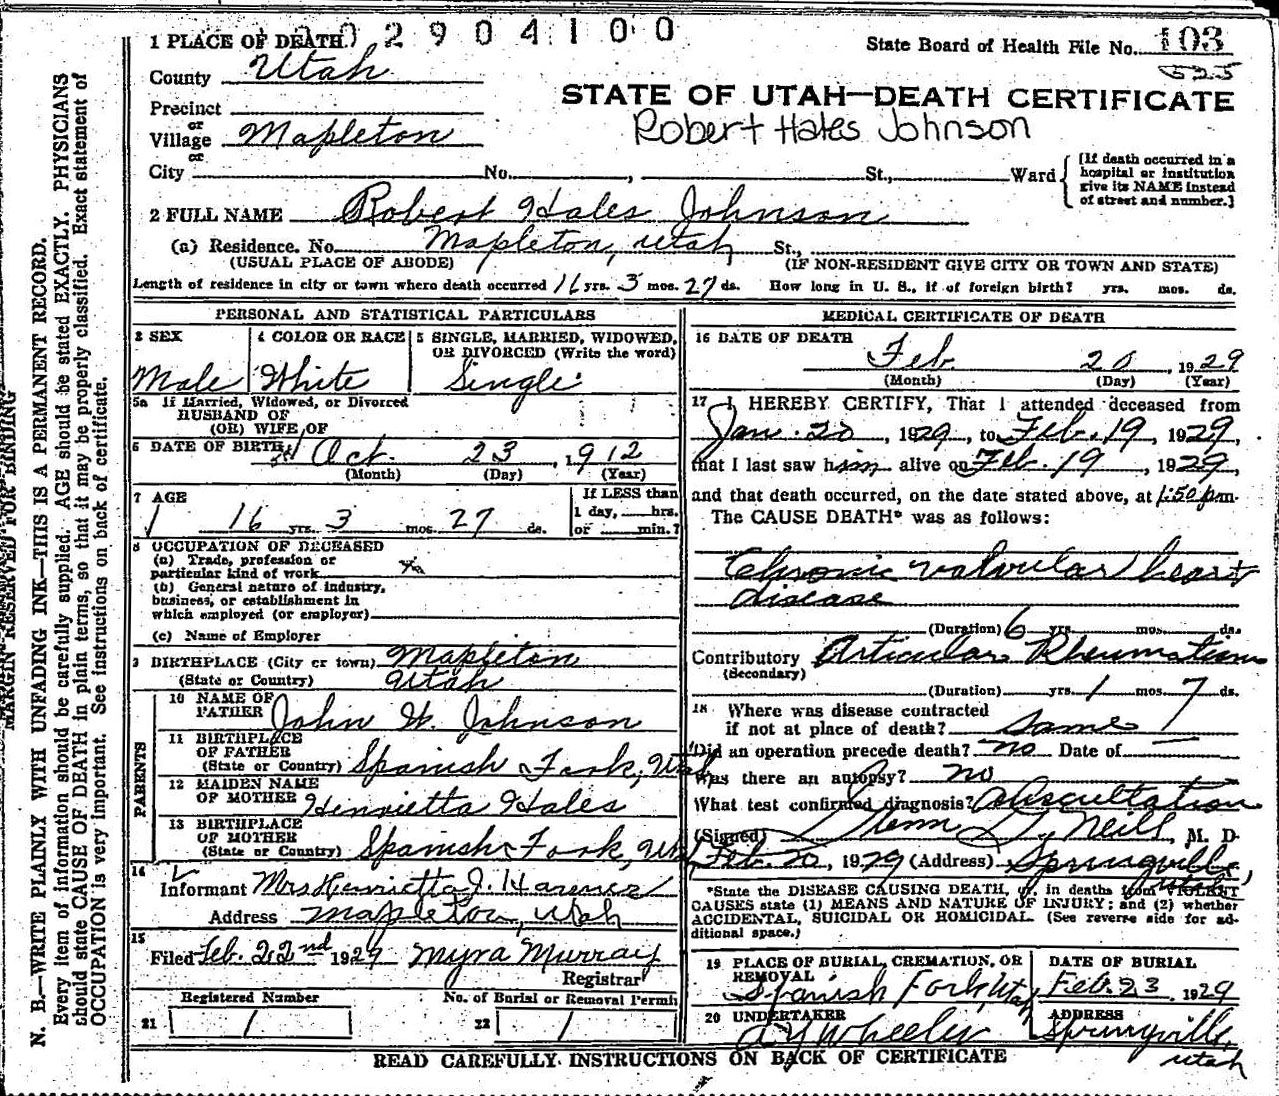 2904100
1 PLACE OF DEATH
State Board of Health File No. 103
525
County Utah
STATE OF UTAH—DEATH CERTIFICATE
Precinct
Robert Hales Johnson
or
Village Mapleton
or
City No. , St., Ward
[If death occurred in a
hospital or institution
give its NAME instead
of street and number.]
2 FULL NAME Robert Hales Johnson
(a) Residence. No. Mapleton, Utah St.,
(USUAL PLACE OF ABODE) (IF NON-RESIDENT GIVE CITY OR TOWN AND STATE)
Length of residence in city or town where death occurred 16 yrs. 3 mos. 27 ds. How long in U. S., if of foreign birth? yrs. mos. ds.
PERSONAL AND STATISTICAL PARTICULARS
3 SEX 4 COLOR OR RACE 5 SINGLE, MARRIED, WIDOWED,
OR DIVORCED (Write the word)
Male White Single
5a If Married, Widowed, or Divorced
HUSBAND OF
(OR) WIFE OF
6 DATE OF BIRTH Oct. 23, 1912
(Month) (Day) (Year)
7 AGE If LESS than
1 day, hrs.
16 yrs. 3 mos. 27 ds. or min.?
8 OCCUPATION OF DECEASED
(a) Trade, profession or
particular kind of work
(b) General nature of industry,
business, or establishment in
which employed (or employer)
(c) Name of Employer
9 BIRTHPLACE (City or town) Mapleton
(State or Country) Utah
PARENTS
10 NAME OF
FATHER John W. Johnson
11 BIRTHPLACE
OF FATHER
(State or Country) Spanish Fork, Utah
12 MAIDEN NAME
OF MOTHER Henrietta Hales
13 BIRTHPLACE
OF MOTHER
(State or Country) Spanish Fork, Utah
14
Informant Mrs Henrietta J. Harmer
Address Mapleton, Utah
15
Filed Feb. 22nd 1929 Myra Murray
Registrar
Registered Number No. of Burial or Removal Permit
21 1 22 1
MEDICAL CERTIFICATE OF DEATH
16 DATE OF DEATH
Feb 20, 1929
(Month) (Day) (Year)
17 I HEREBY CERTIFY, That I attended deceased from
Jan. 20, 1929, to Feb. 19, 1929,
that I last saw him alive on Feb. 19, 1929,
and that death occurred, on the date stated above, at 1:50 pm.
The CAUSE DEATH* was as follows:
Chronic valvular heart
disease
(Duration) 6 yrs. mos. ds.
Contributory Articular Rheumatism
(Secondary)
(Duration) yrs. 1 mos. 7 ds.
18 Where was disease contracted
if not at place of death? Same
Did an operation precede death? no Date of
Was there an autopsy? no
What test confirmed diagnosis? Auscultation
(Signed) Neill, M. D
Feb. 20, 1929 (Address) Springville,
Utah
*State the DISEASE CAUSING DEATH, or, in deaths from VIOLENT
CAUSES state (1) MEANS AND NATURE OF INJURY; and (2) whether
ACCIDENTAL, SUICIDAL OR HOMICIDAL. (See reverse side for ad-
ditional space.)
19 PLACE OF BURIAL, CREMATION, OR
REMOVAL
Spanish Fork Utah
DATE OF BURIAL
Feb. 23 1929
20 UNDERTAKER
A Y Wheeler
ADDRESS
Springville,
Utah
READ CAREFULLY INSTRUCTIONS ON BACK OF CERTIFICATE
MARGIN RESERVED FOR BINDING
N. B.—WRITE PLAINLY WITH UNFADING INK—THIS IS A PERMANENT RECORD.
Every item of information should be carefully supplied. AGE should be stated EXACTLY. PHYSICIANS
should state CAUSE OF DEATH in plain terms, so that it may be properly classified. Exact statement of
OCCUPATION is very important. See instructions on back of certificate.